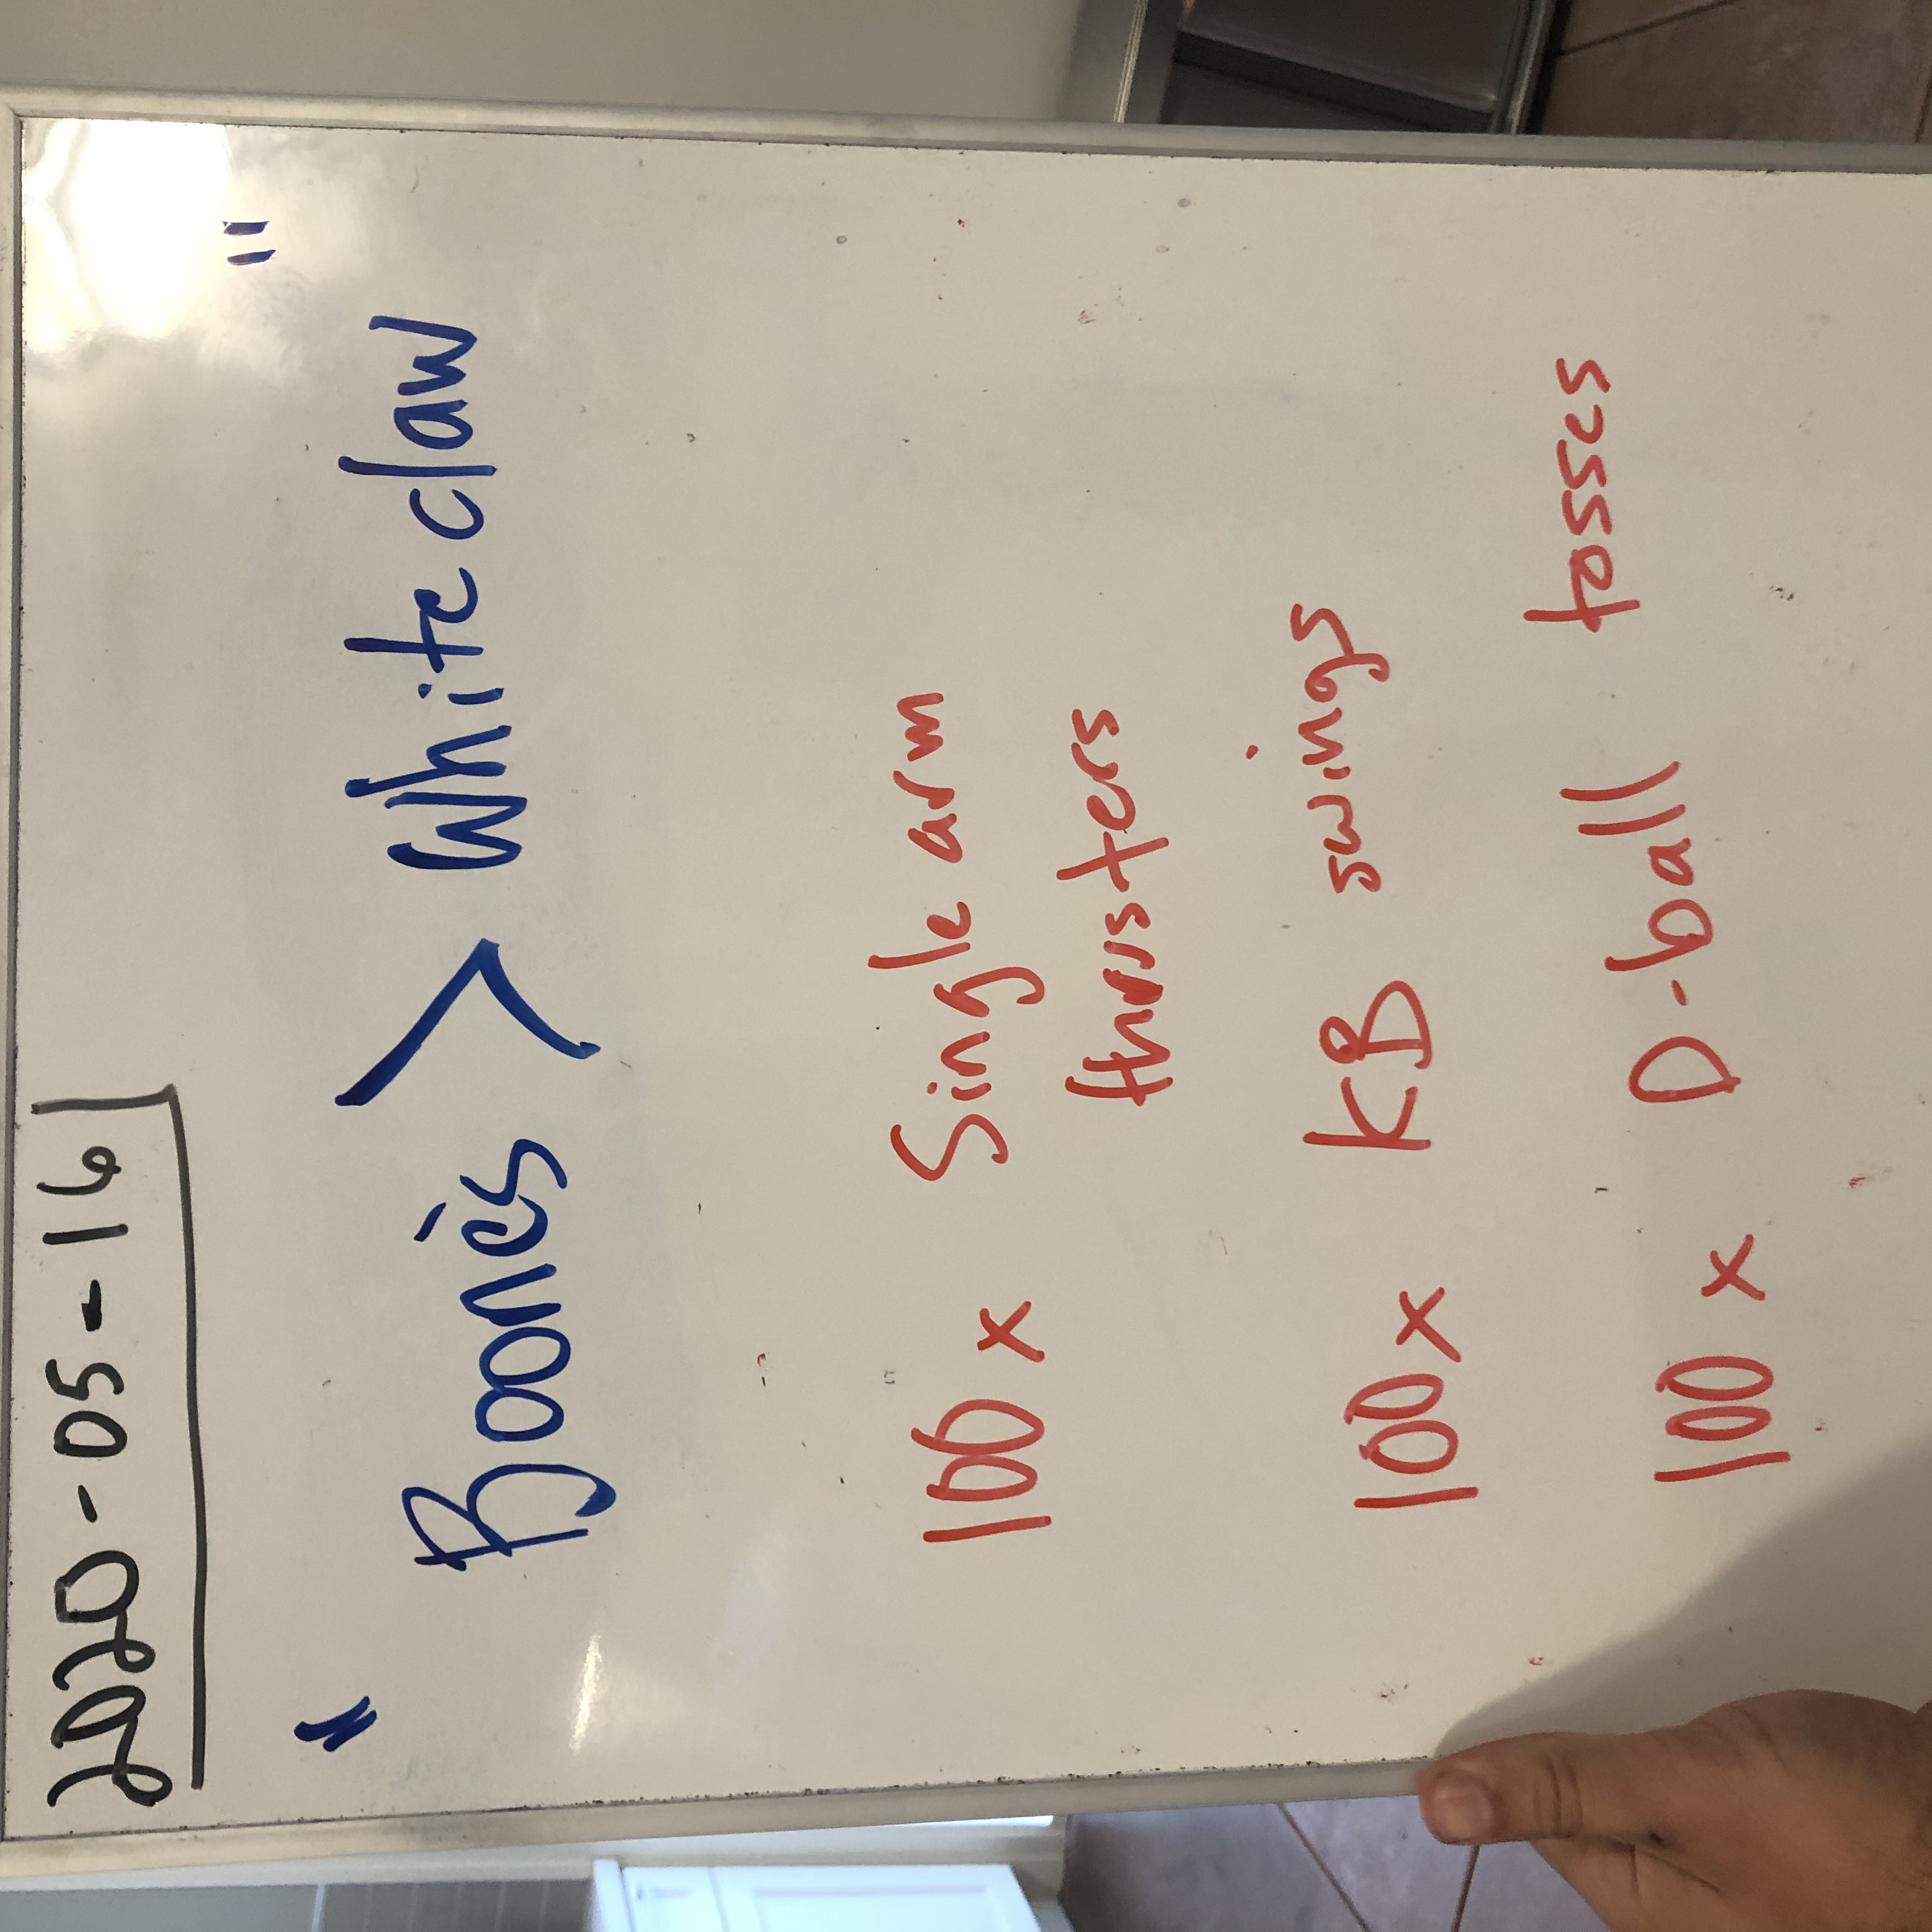 2020-05-16
" Boone's > White claw "
100x Single arm
thrusters
100x KB swings
100x D-ball tosses